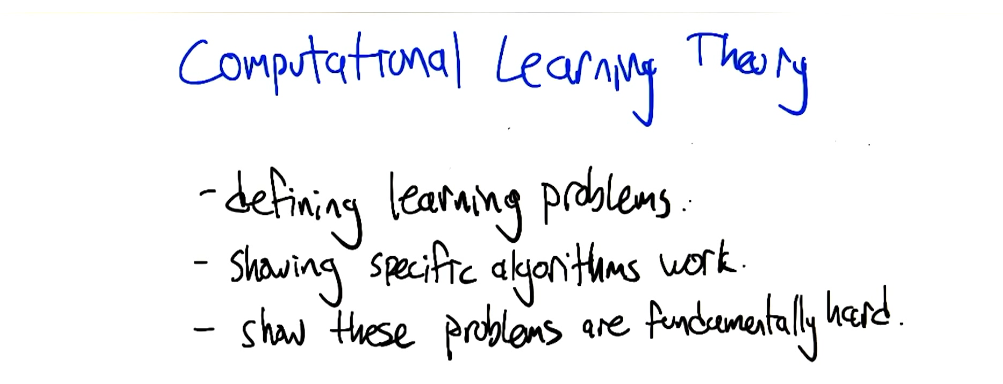 Computational Learning Theory
- defining learning problems.
- showing specific algorithms work.
- show these problems are fundamentally hard.